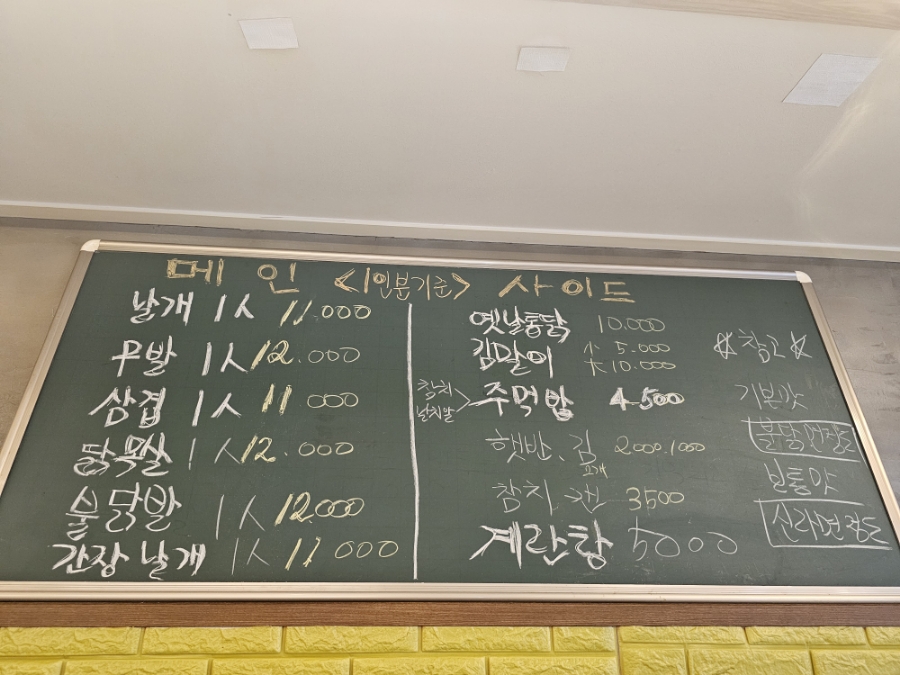 메인 <1인분기준> 사이드
날개 1人 11.000
무발 1人 12.000
삼겹 1人 11 000
닭목살 1人 12.000
불닭발 1人 12.000
간장날개 1人 11 000
옛날통닭 10.000
김말이 小 5.000
大 10.000
참치
날치알 > 주먹밥 4.500
햇반. 김 2000.1000
참치 캔 3500
계란탕 5000
☆참고☆
기본맛
불닭면정도
보통맛
신라면정도